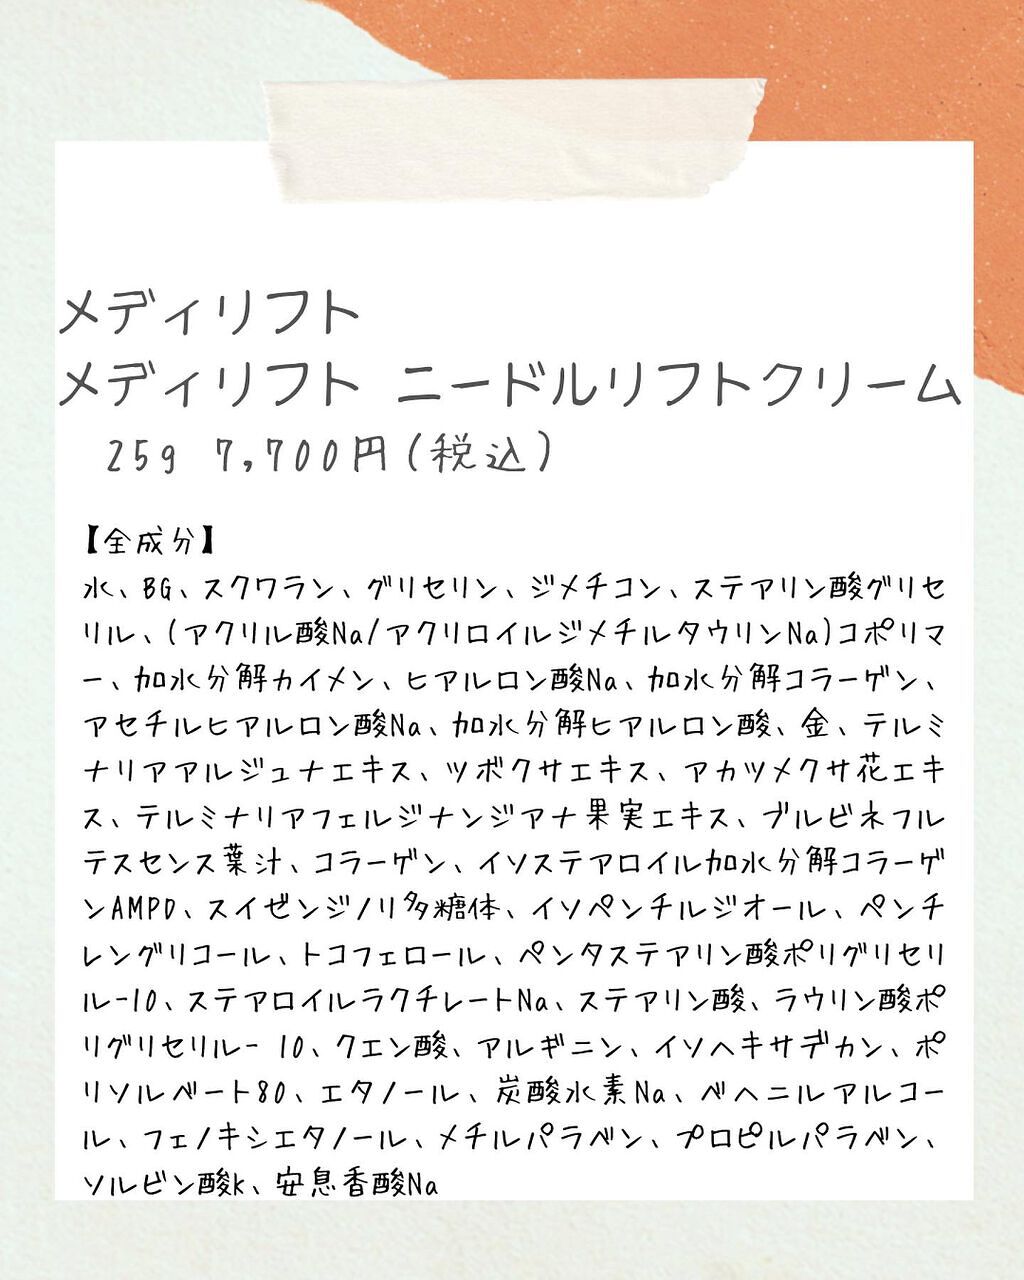 メディリフト
メディリフト ニードルリフトクリーム
25g 7,700円(税込)
【全成分】
水、BG、スクワラン、グリセリン、ジメチコン、ステアリン酸グリセ
リル、(アクリル酸Na/アクリロイルジメチルタウリンNa)コポリマ
ー、加水分解カイメン、ヒアルロン酸Na、加水分解コラーゲン、
アセチルヒアルロン酸Na、加水分解ヒアルロン酸、金、テルミ
ナリアアルジュナエキス、ツボクサエキス、アカツメクサ花エキ
ス、テルミナリアフェルジナンジアナ果実エキス、ブルビネフル
テスセンス葉汁、コラーゲン、イソステアロイル加水分解コラーゲ
ンAMPD、スイゼンジノリ多糖体、イソペンチルジオール、ペンチ
レングリコール、トコフェロール、ペンタステアリン酸ポリグリセリ
ル-10、ステアロイルラクチレートNa、ステアリン酸、ラウリン酸ポ
リグリセリル- 10、クエン酸、アルギニン、イソヘキサデカン、ポ
リソルベート80、エタノール、炭酸水素Na、ベヘニルアルコー
ル、フェノキシエタノール、メチルパラベン、プロピルパラベン、
ソルビン酸k、安息香酸Na